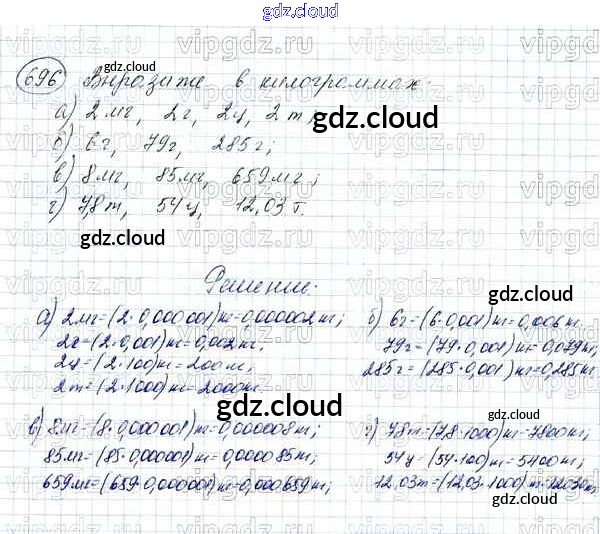 gdz.cloud
gdz.cloud
vipgdz.ru vipgdz.ru vipgdz.ru
696 Выразите в килограммах:
gdz.cloud
а) 2 мг, 2г, 2ц, 2т;
gdz.cloud
б) 6г, 79г, 285г;
в) 8мг, 85мг, 659мг;
г) 7,8т, 54ц, 12,03т.
gdz.cloud
Решение.
gdz.cloud
а) 2мг=(2·0,000001)кг=0,000002кг;
2г=(2·0,001)кг=0,002кг.
2ц=(2·100)кг=200кг;
2т=(2·1000)кг=2000кг.
б) 6г=(6·0,001)кг=0,006кг.
79г=(79·0,001)кг=0,079кг,
285г=(285·0,001)кг=0,285кг
gdz.cloud
gdz.cloud
в) 8мг=(8·0,000001)кг=0,000008кг;
85мг=(85·0,000001)кг=0,000085кг;
659мг=(659·0,000001)кг=0,000659кг;
г) 7,8т=(7,8·1000)кг=7800кг;
54ц=(54·100)кг=5400кг;
12,03т=(12,03·1000)кг=12030кг
gdz.cloud
gdz.cloud